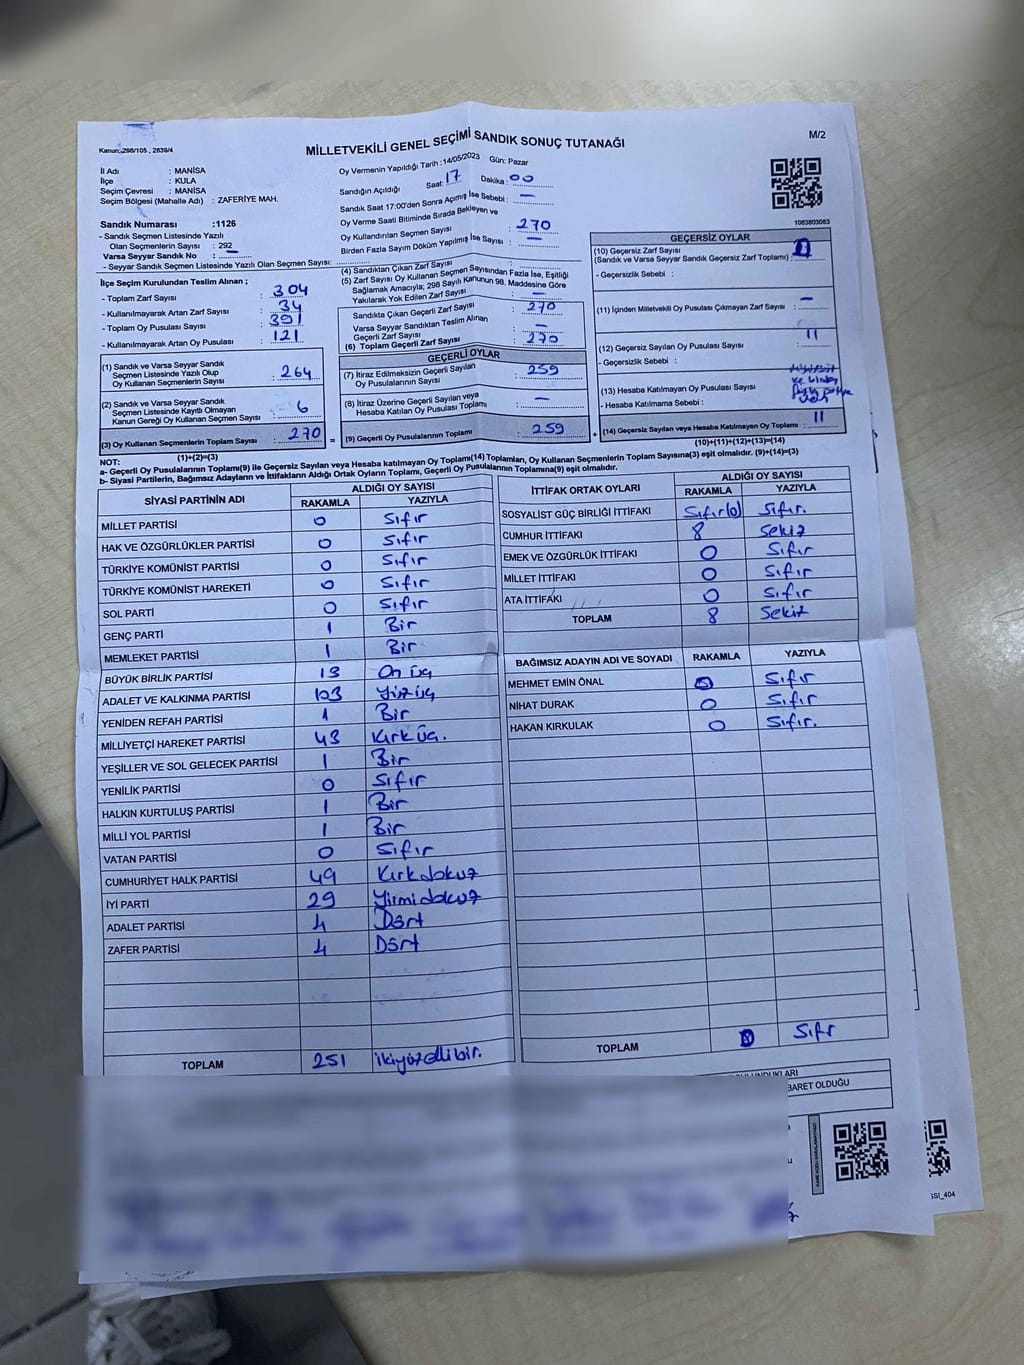 Kanun: 298/105 , 2839/4
MİLLETVEKİLİ GENEL SEÇİMİ SANDIK SONUÇ TUTANAĞI
M/2
İl Adı : MANİSA
İlçe : KULA
Seçim Çevresi : MANİSA
Seçim Bölgesi (Mahalle Adı) : ZAFERİYE MAH.
Sandık Numarası :1126
- Sandık Seçmen Listesinde Yazılı
Olan Seçmenlerin Sayısı : 292
Varsa Seyyar Sandık No : —
- Seyyar Sandık Seçmen Listesinde Yazılı Olan Seçmen Sayısı:
İlçe Seçim Kurulundan Teslim Alınan ;
- Toplam Zarf Sayısı : 304
- Kullanılmayarak Artan Zarf Sayısı : 34
- Toplam Oy Pusulası Sayısı : 391
- Kullanılmayarak Artan Oy Pusulası : 121
(1) Sandık ve Varsa Seyyar Sandık
Seçmen Listesinde Yazılı Olup
Oy Kullanan Seçmenlerin Sayısı : 264
(2) Sandık ve Varsa Seyyar Sandık
Seçmen Listesinde Kayıtlı Olmayan
Kanun Gereği Oy Kullanan Seçmen Sayısı : 6
(3) Oy Kullanan Seçmenlerin Toplam Sayısı : 270
(1)+(2)=(3)
Oy Vermenin Yapıldığı Tarih :14/05/2023 Gün: Pazar
Sandığın Açıldığı Saat: 17 Dakika : 00
Sandık Saat 17:00'den Sonra Açımış İse Sebebi : —
Oy Verme Saati Bitiminde Sırada Bekleyen ve
Oy Kullandırılan Seçmen Sayısı : 270
Birden Fazla Sayım Döküm Yapılmış İse Sayısı : —
(4) Sandıktan Çıkan Zarf Sayısı
(5) Zarf Sayısı Oy Kullanan Seçmen Sayısından Fazla İse, Eşitliği
Sağlamak Amacıyla; 298 Sayılı Kanunun 98. Maddesine Göre
Yakılarak Yok Edilen Zarf Sayısı : —
Sandıkta Çıkan Geçerli Zarf Sayısı : 270
Varsa Seyyar Sandıktan Teslim Alınan
Geçerli Zarf Sayısı : —
(6) Toplam Geçerli Zarf Sayısı : 270
GEÇERLİ OYLAR
(7) İtiraz Edilmeksizin Geçerli Sayılan
Oy Pusulalarının Sayısı : 259
(8) İtiraz Üzerine Geçerli Sayılan veya
Hesaba Katılan Oy Pusulası Toplamı : —
= (9) Geçerli Oy Pusulalarının Toplamı : 259 +
1083803083
GEÇERSİZ OYLAR
(10) Geçersiz Zarf Sayısı
(Sandık ve Varsa Seyyar Sandık Geçersiz Zarf Toplamı) :
- Geçersizlik Sebebi :
(11) İçinden Milletvekili Oy Pusulası Çıkmayan Zarf Sayısı : —
(12) Geçersiz Sayılan Oy Pusulası Sayısı : 11
- Geçersizlik Sebebi :
(13) Hesaba Katılmayan Oy Pusulası Sayısı
- Hesaba Katılmama Sebebi :
(14) Geçersiz Sayılan veya Hesaba Katılmayan Oy Toplamı : 11
(10)+(11)+(12)+(13)=(14)
NOT:
a- Geçerli Oy Pusulalarının Toplamı(9) ile Geçersiz Sayılan veya Hesaba katılmayan Oy Toplamı(14) Toplamları, Oy Kullanan Seçmenlerin Toplam Sayısına(3) eşit olmalıdır. (9)+(14)=(3)
b- Siyasi Partilerin, Bağımsız Adayların ve İttifakların Aldığı Oyların Toplamı, Geçerli Oy Pusulalarının Toplamına(9) eşit olmalıdır.
SİYASİ PARTİNİN ADI
ALDIĞI OY SAYISI
RAKAMLA YAZIYLA
MİLLET PARTİSİ 0 Sıfır
HAK VE ÖZGÜRLÜKLER PARTİSİ 0 Sıfır
TÜRKİYE KOMÜNİST PARTİSİ 0 Sıfır
TÜRKİYE KOMÜNİST HAREKETİ 0 Sıfır
SOL PARTİ 0 Sıfır
GENÇ PARTİ 1 Bir
MEMLEKET PARTİSİ 1 Bir
BÜYÜK BİRLİK PARTİSİ 13 On üç
ADALET VE KALKINMA PARTİSİ 103 Yüzüç
YENİDEN REFAH PARTİSİ 1 Bir
MİLLİYETÇİ HAREKET PARTİSİ 43 Kırk üç.
YEŞİLLER VE SOL GELECEK PARTİSİ 1 Bir
YENİLİK PARTİSİ 0 Sıfır
HALKIN KURTULUŞ PARTİSİ 1 Bir
MİLLİ YOL PARTİSİ 1 Bir
VATAN PARTİSİ 0 Sıfır
CUMHURİYET HALK PARTİSİ 49 Kırkdokuz
İYİ PARTİ 29 Yirmidokuz
ADALET PARTİSİ 4 Dört
ZAFER PARTİSİ 4 Dört
TOPLAM 251 ikiyüzellibir.
İTTİFAK ORTAK OYLARI
ALDIĞI OY SAYISI
RAKAMLA YAZIYLA
SOSYALİST GÜÇ BİRLİĞİ İTTİFAKI Sıfır(0) Sıfır.
CUMHUR İTTİFAKI 8 Sekiz
EMEK VE ÖZGÜRLÜK İTTİFAKI 0 Sıfır
MİLLET İTTİFAKI 0 Sıfır
ATA İTTİFAKI 0 Sıfır
TOPLAM 8 Sekiz
BAĞIMSIZ ADAYIN ADI VE SOYADI RAKAMLA YAZIYLA
MEHMET EMİN ÖNAL 0 Sıfır
NİHAT DURAK 0 Sıfır
HAKAN KIRKULAK 0 Sıfır.
TOPLAM 0 Sıfır
BARET OLDUĞU